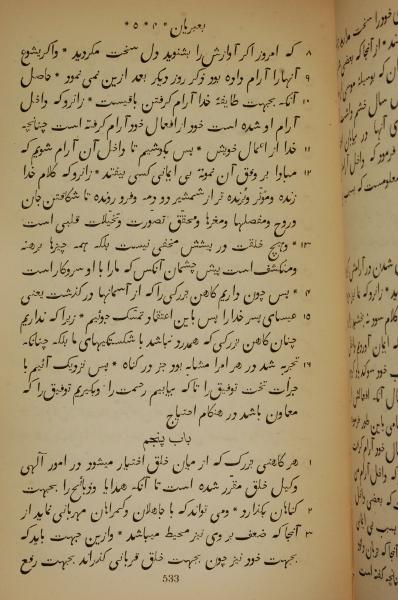 بعبریان * ۴ * ۵ *
۸ که امروز اگر آوازش را بشنوید دل سخت مگردید * و اگر یشوع
۹ آنها را آرام داده بود ذکر روز دیگر بعد ازین نمی نمود * حاصل
۱۰ آنکه بجهت طایفهٔ خدا آرام گرفتن باقیست * زانرو که داخل
آرام او شده است خود از افعال خود آرام گرفته است چنانچه
۱۱ خدا از اعمال خویش * پس بکوشیم تا داخل آن آرام شویم که
۱۲ مبادا بر وفق آن نمونهٔ بی ایمانی کسی بیفتد * زانرو که کلام خدا
زنده و مؤثر و برنده تر از شمشیر دو دمه و فرو رونده تا شکافتن جان
و روح و مفصلها و مغزها و محقق تصورت و تخیلات قلبی است
۱۳ * و هیچ خلقت در پیشش مخفی نیست بلکه همه چیزها برهنه
و منکشف است پیش چشمان آنکس که ما را با او سر و کار است
۱۴ * پس چون داریم کاهن بزرگی را که از آسمانها در گذشت یعنی
۱۵ عیسای پسر خدا را پس باین اعتقاد تمسک جوئیم * زیرا که نداریم
چنان کاهن بزرگی که همدرد نباشد با شکستگیهای ما بلکه چنانکه
۱۶ تجربه شد در هر امرا مشابه بود جز در گناه * پس نزدیک آئیم با
جرأت تخت توفیق را تا که بیابیم رحمت را و بگیریم توفیق را که
معاون باشد در هنگام احتیاج
باب پنجم
۱ هر کاهنی بزرگ که از میان خلق اختیار میشود در امور آلهی
وکیل خلق مقرر شده است تا آنکه هدایا و ذبائح را بجهت
۲ گناهان بگذارد * و می تواند که با جاهلان و گمراهان مهربانی نماید از
۳ آنجا که ضعف بر وی نیز محیط میباشد * و ازین جهت باید که
بجهت خود نیز چون بجهت خلق قربانی گذراند بجهت رفع
533